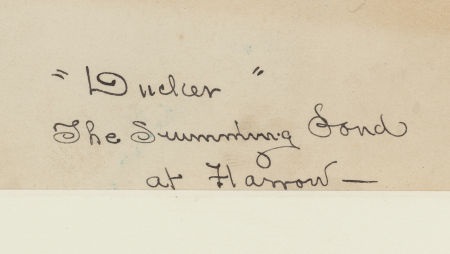 "Ducker"
The Swimming Pond
at Harrow —